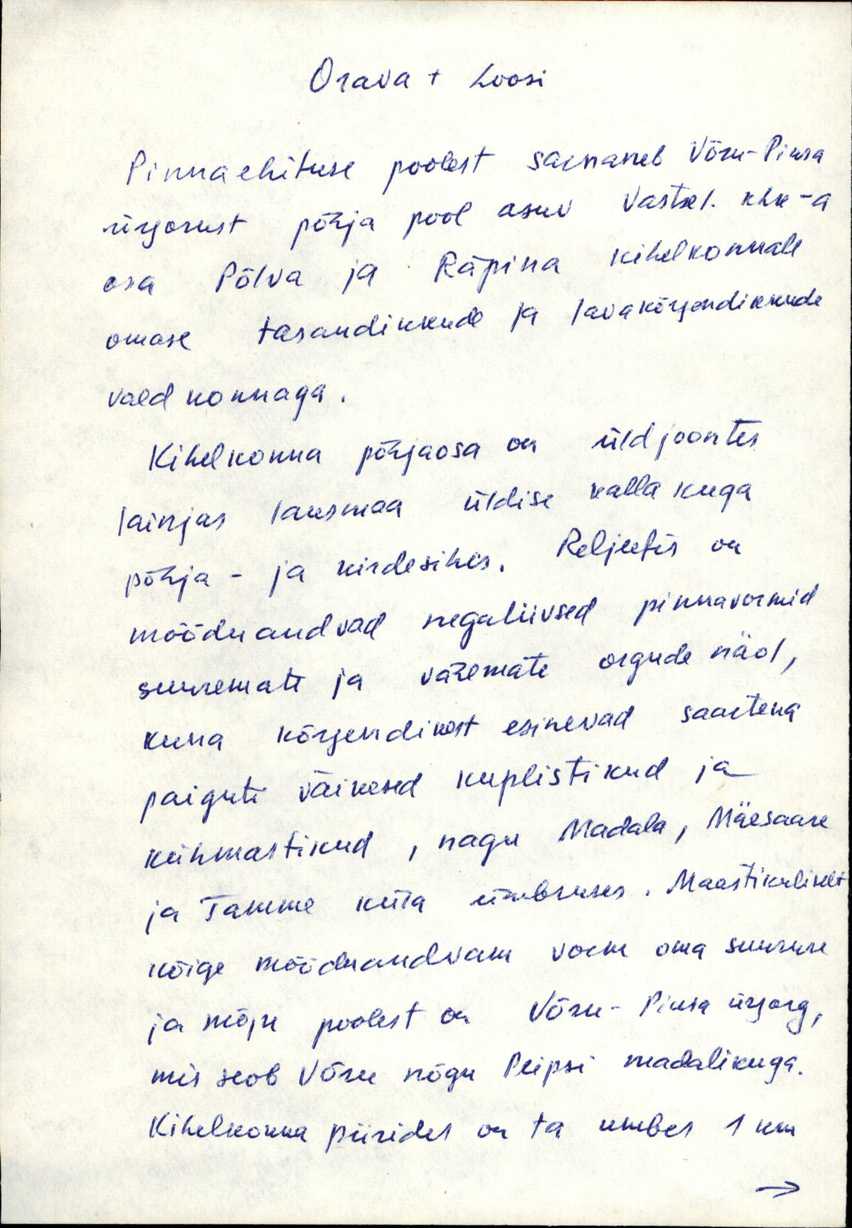 Orava + Loosi
Pinnaehituse poolest sarnaneb Võru-Piusa
ürgorust põhja pool asuv Vastsel. khk-a
osa Põlva ja Räpina kihelkonnale
omase tasandikkude ja lavakõrgendikkude
valdkonnaga.
Kihelkonna põhjaosa on üldjoontes
lainjas lausmaa üldise kallakuga
põhja- ja kirdesihis. Reljeefis on
mõõduandvad negatiivsed pinnavormid
suuremate ja vähemate orgude näol,
kuna kõrgendikest esinevad saartena
paiguti väikesed kuplistikud ja
kühmastikud, nagu Madala, Mäesaare
ja Tamme küla ümbruses. Maastikuliselt
kõige mõõduandvam vorm oma suuruse
ja mõju poolest on Võru-Piusa ürgorg,
mis seob Võru nõgu Peipsi madalikuga.
Kihelkonna piirides on ta umbes 1 km
→